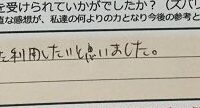 を受けられていかがでしたか？（ズバリ
直な感想が、私達の何よりの力となり今後の参考と
を利用したいと思いました。